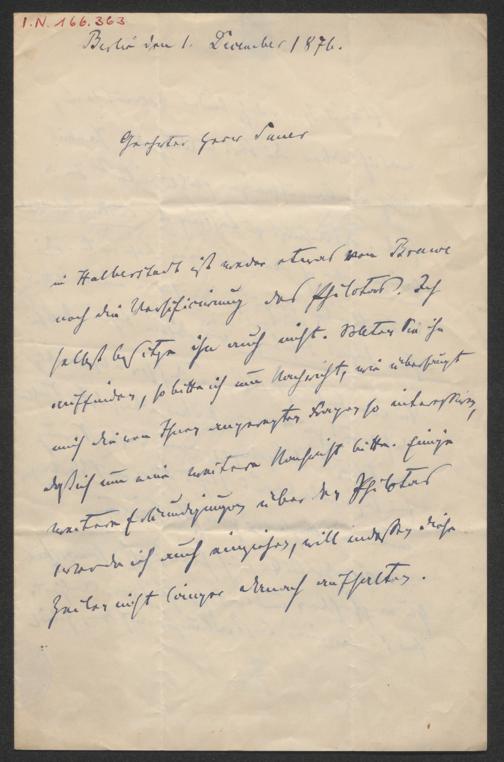 I.N. 166.363
Berlin den 1. December 1876.
Geehrter Herr Sauer
in Halberstadt ist weder etwas von Brawe
noch die Versificirung des Philotas. Ich
selbst besitze ihn auch nicht. Sollten Sie ihn
auffinden, so bitte ich um Nachricht, wie überhaupt
mich die von Ihnen angeregten Fragen so interessiren,
daß ich um eine weitere Nachricht bitte. Einige
weitere Erkundigungen über den Philotas
werde ich auch einziehen, will indessen diese
Zeilen nicht länger danach aufhalten.